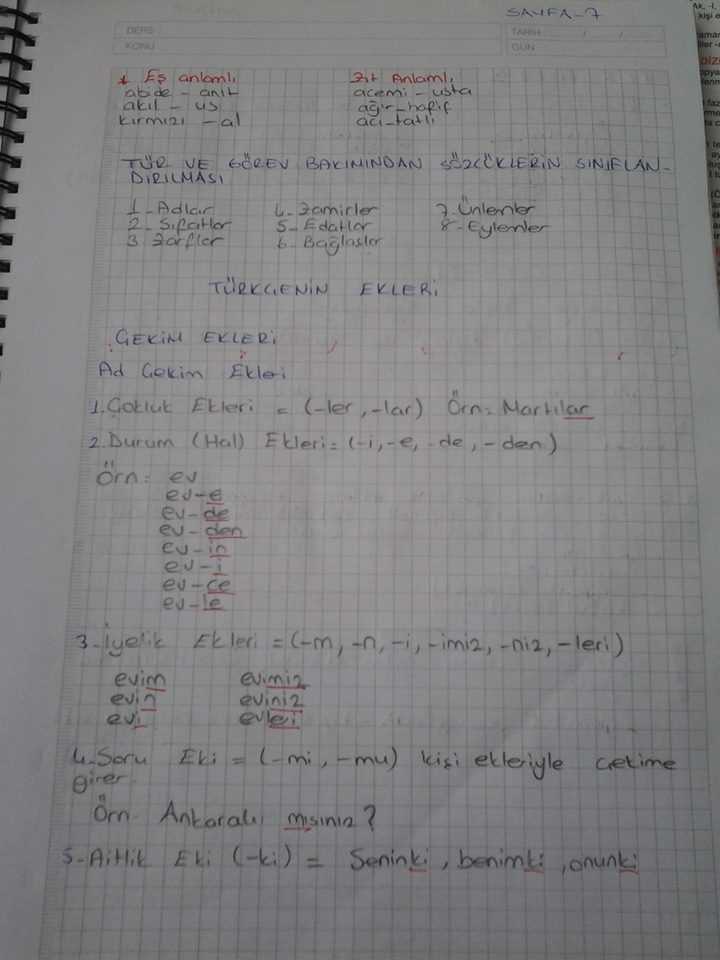 SAYFA-7
DERS
KONU
TARİH / /
GÜN
* Eş anlamlı
abide - anıt
akıl - us
kırmızı - al
Zıt Anlamlı
acemi - usta
ağır - hafif
acı - tatlı
TÜR VE GÖREV BAKIMINDAN SÖZCÜKLERİN SINIFLAN-
DIRILMASI
1 - Adlar
2 - Sıfatlar
3 Zarflar
4 - Zamirler
5 - Edatlar
6 - Bağlaçlar
7 - Ünlemler
8 - Eylemler
TÜRKÇENİN EKLERİ
ÇEKİM EKLERİ
Ad Çekim Ekleri
1. Çokluk Ekleri = (-ler, -lar) Örn: Martılar
2. Durum (Hal) Ekleri = (-i, -e, -de, -den)
Örn: ev
ev-e
ev-de
ev-den
ev-in
ev-i
ev-ce
ev-le
3 - İyelik Ekleri = (-m, -n, -i, -imiz, -niz, -leri)
evim
evin
evi
evimiz
eviniz
evleri
4. Soru Eki = (-mi, -mu) kişi ekleriyle çekime
girer.
Örn. Ankaralı mısınız?
5 - Aitlik Eki (-ki) = Seninki, benimki, onunki